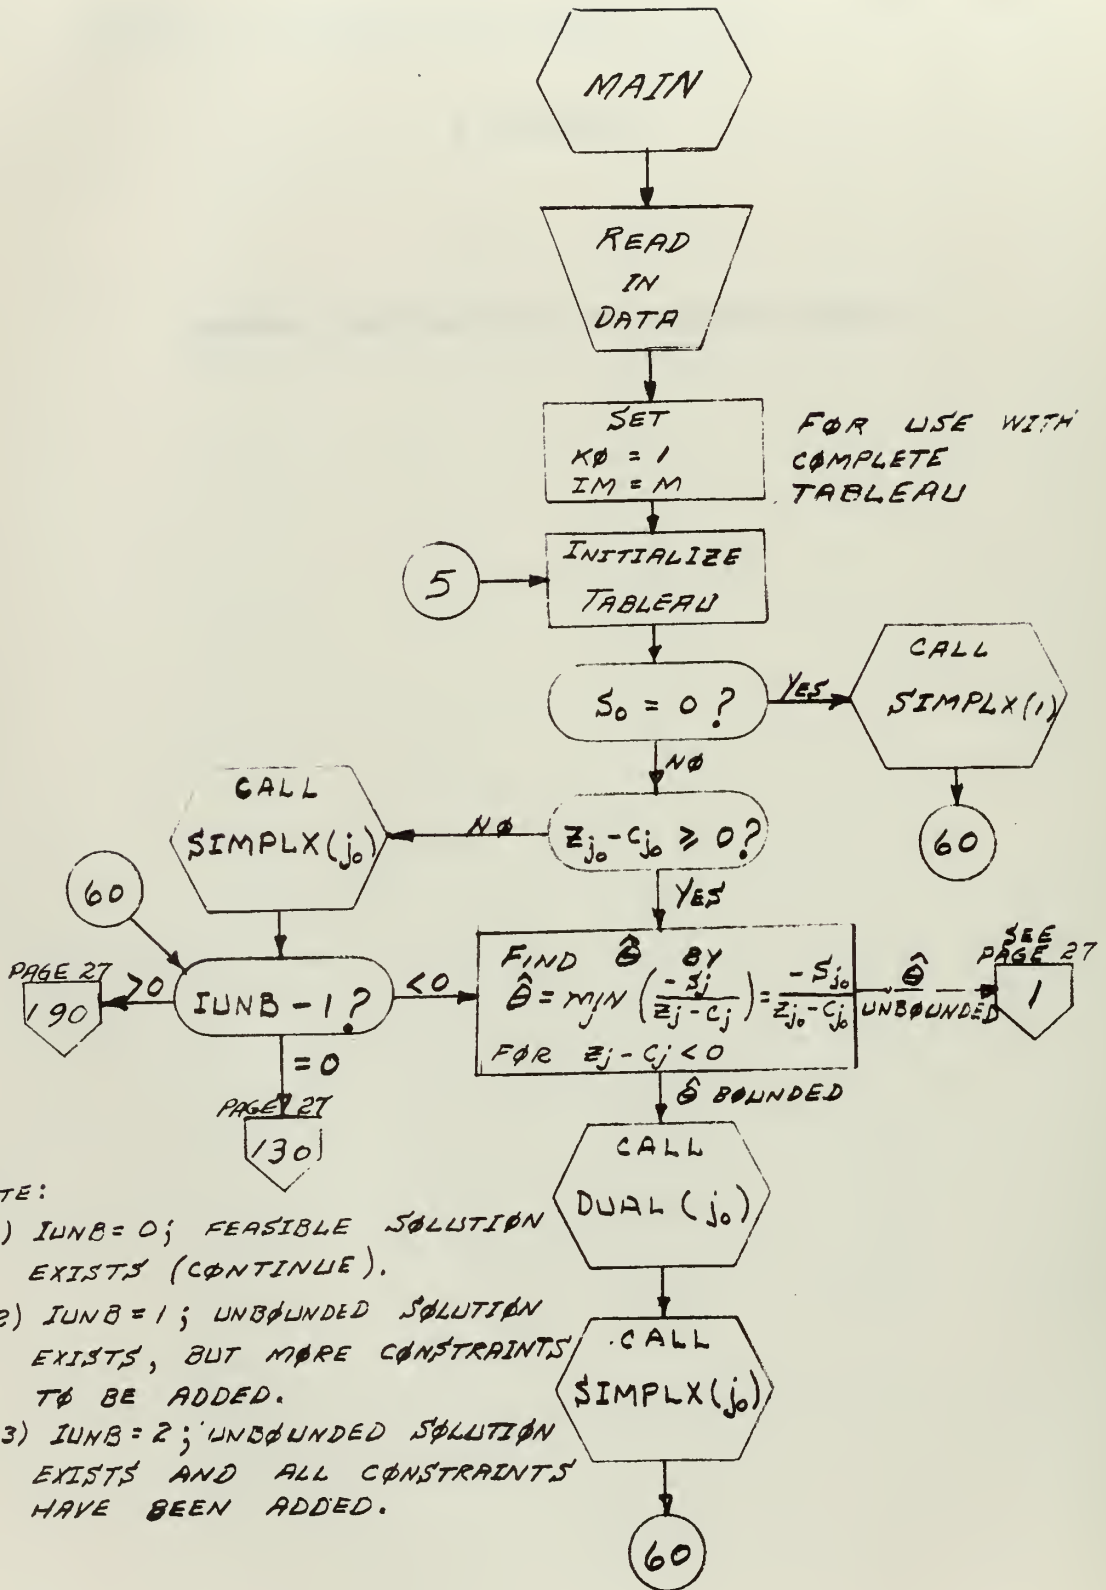 MAIN
READ
IN
DATA
SET
KØ = 1
IM = M
FØR USE WITH
CØMPLETE
TABLEAU
5
INITIALIZE
TABLEAU
S₀ = 0 ?
YES
CALL
SIMPLX(1)
60
NØ
z_{j₀} - c_{j₀} ≥ 0?
NØ
CALL
SIMPLX(j₀)
60
YES
IUNB - 1 ?
>0
PAGE 27
190
= 0
PAGE 27
130
<0
FIND θ̂ BY
θ̂ = min_j (-S_j / (z_j - c_j)) = -S_{j₀} / (z_{j₀} - c_{j₀})
FØR z_j - c_j < 0
θ̂
UNBØUNDED
SEE
PAGE 27
1
θ̂ BØUNDED
CALL
DUAL (j₀)
CALL
SIMPLX(j₀)
60
TE:
) IUNB = 0; FEASIBLE SØLUTIØN
EXISTS (CØNTINUE).
2) IUNB = 1; UNBØUNDED SØLUTIØN
EXISTS, BUT MØRE CØNSTRAINTS
TØ BE ADDED.
3) IUNB = 2; UNBØUNDED SØLUTIØN
EXISTS AND ALL CØNSTRAINTS
HAVE BEEN ADDED.